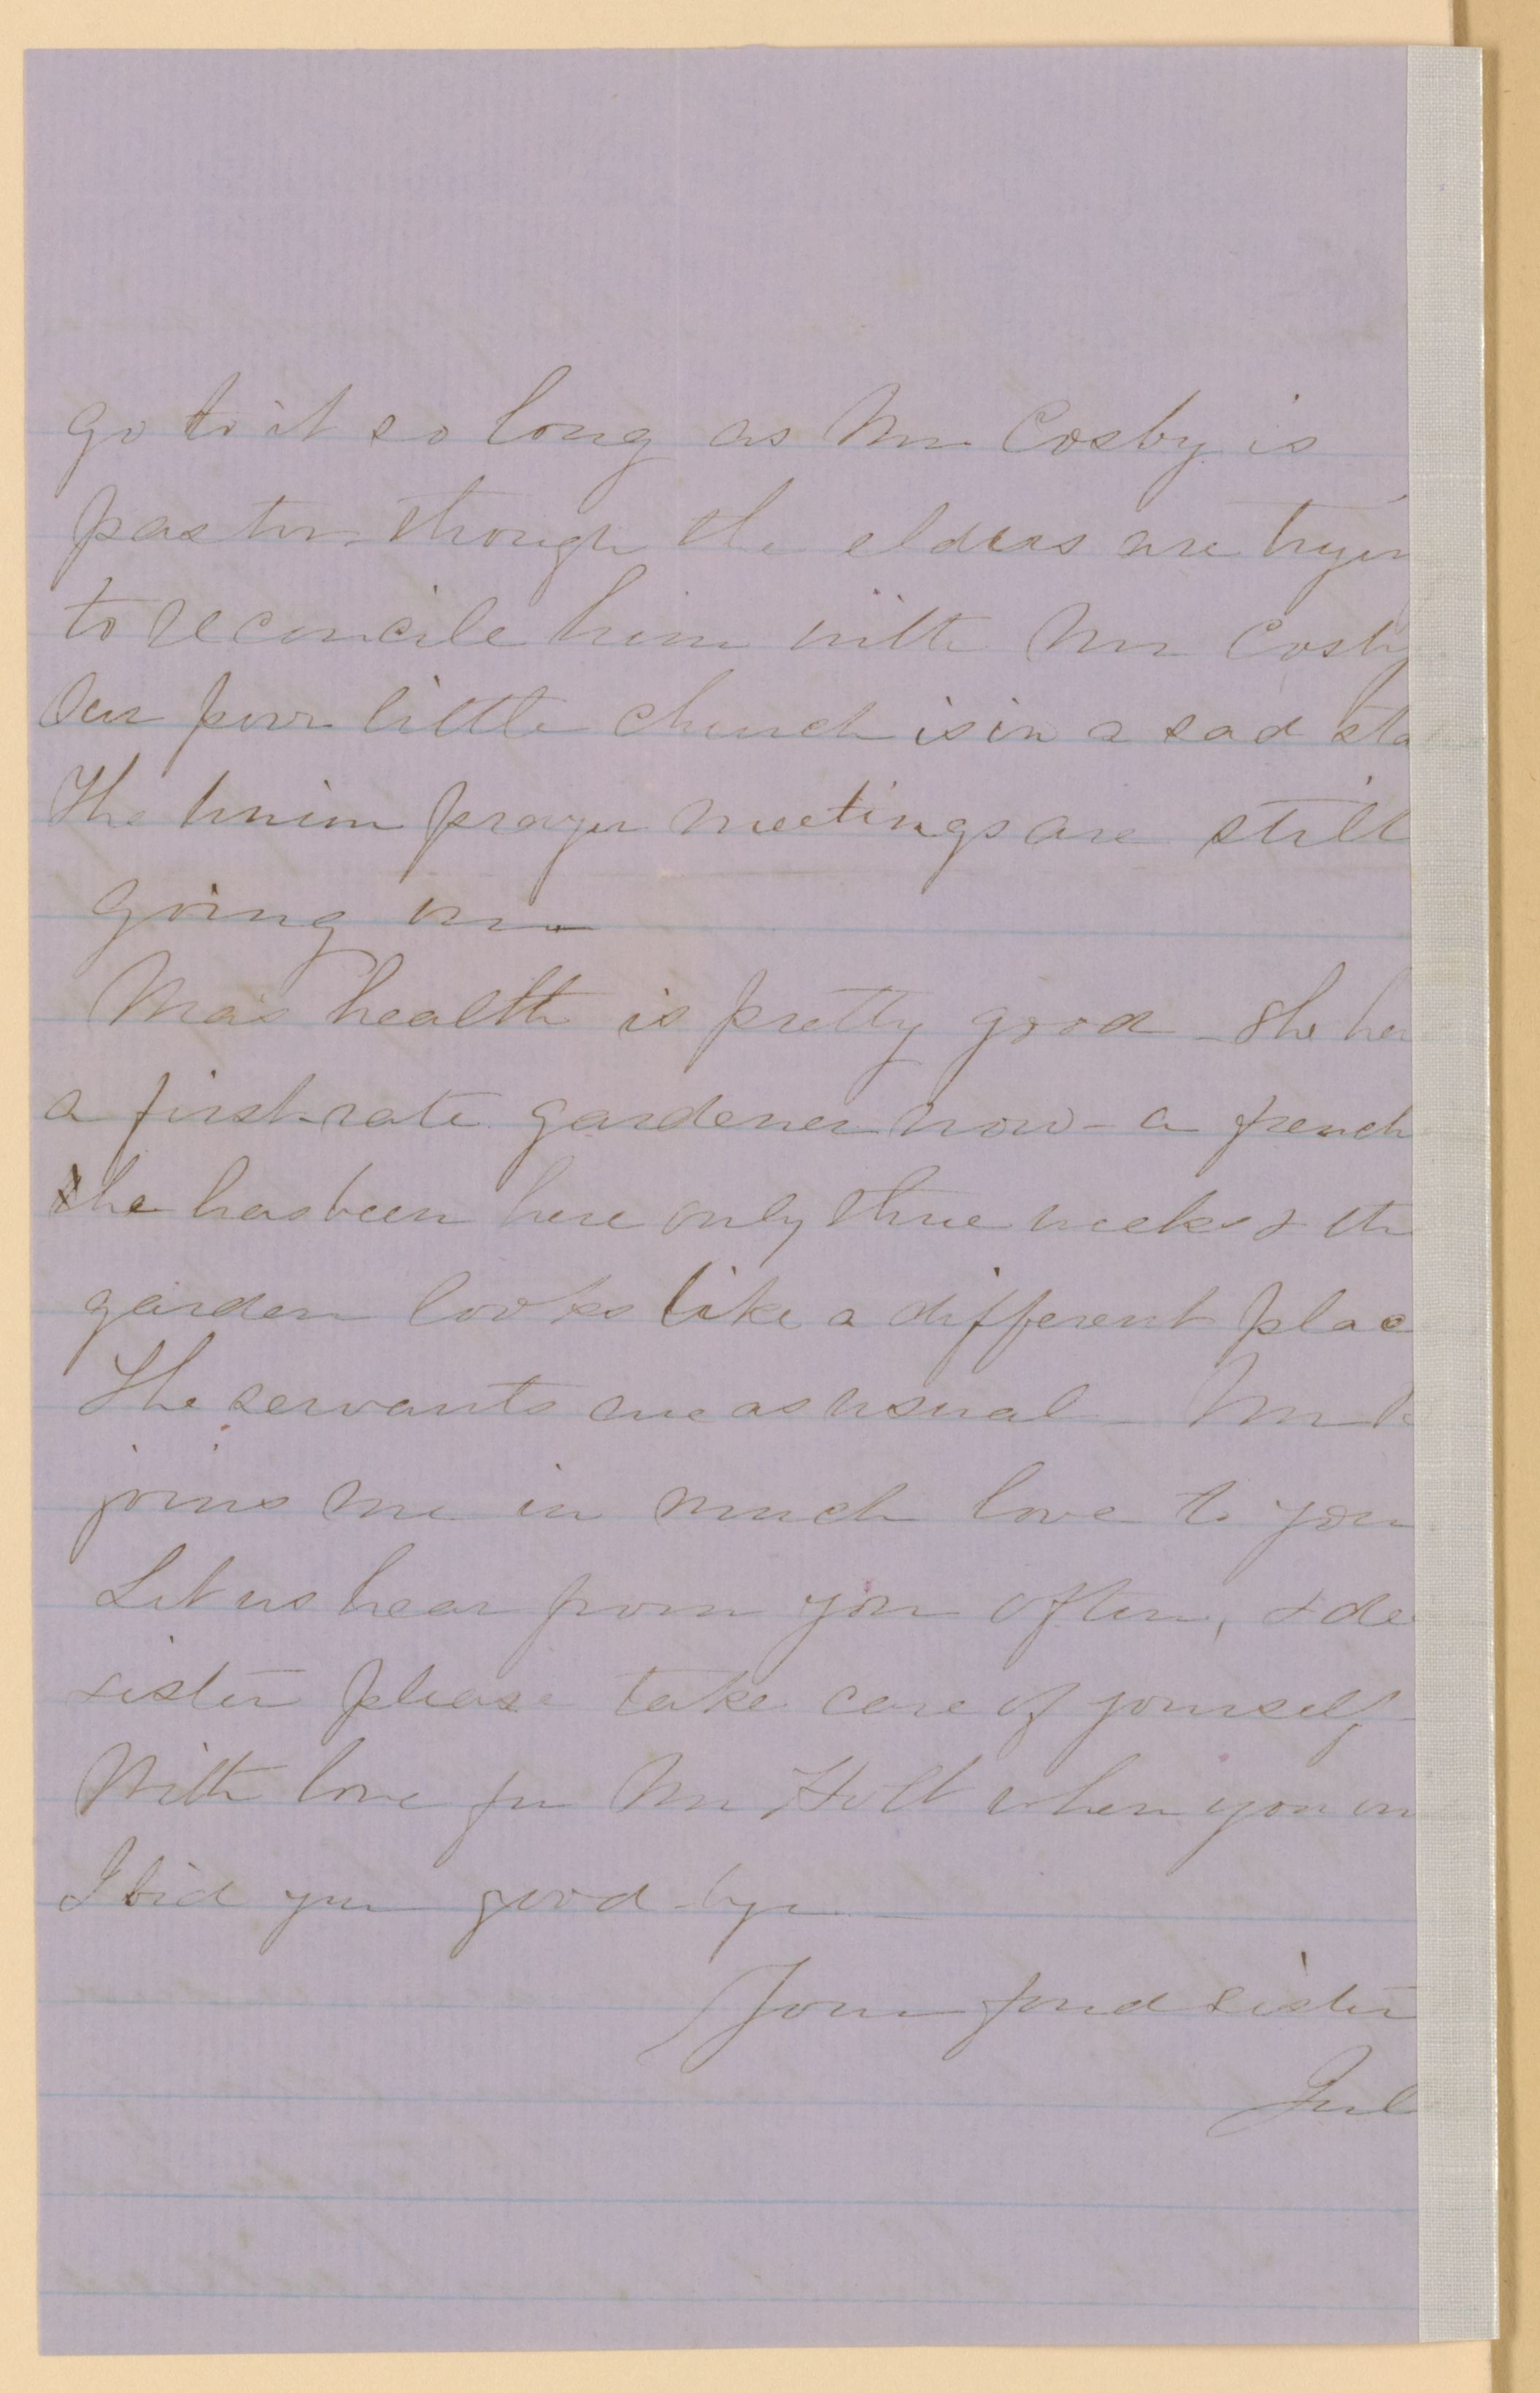 go to it so long as Mr Cosby is
pastor though the elders are tryin
to reconcile him with Mr Cosby
Our poor little church is in a sad sta
The Union prayer meetings are still
going on
Ma's health is pretty good - She ha
a first-rate gardener now - a french
he has been here only three weeks & the
garden looks like a different plac
The servants are as usual - Mr
joins me in much love to you
Let us hear from you often, & de
sister please take care of yourself
With love for Mr Holt when you
I bid you good bye
Your fond sister
Jul